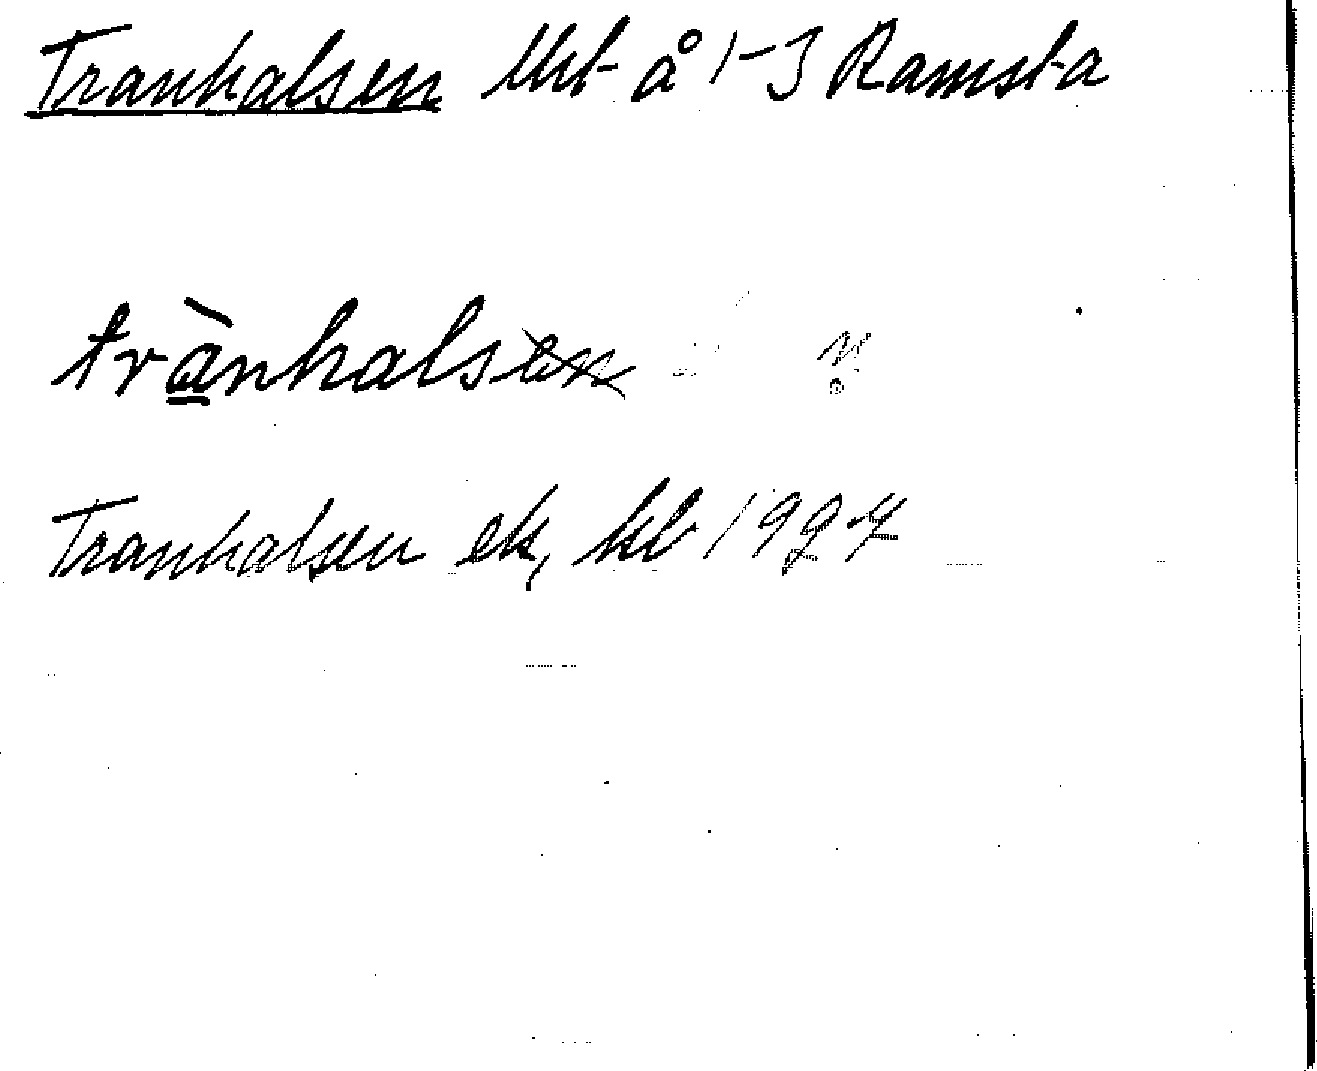 Tranhalsen Utb å 1-3 Ramsta
trànhalsen
Tranhalsen ek, kb 1927